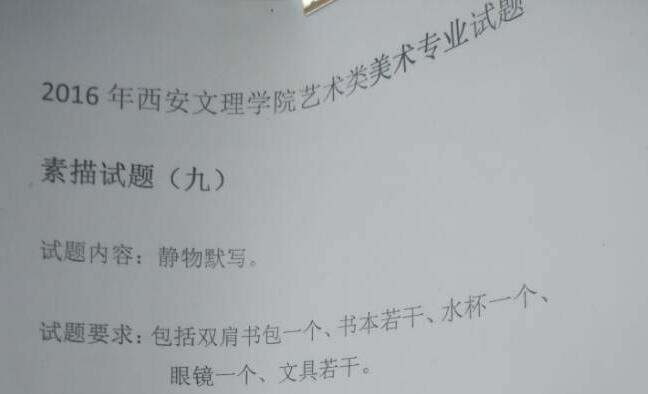 2016 年西安文理学院艺术类美术专业试题
素描试题（九）
试题内容：静物默写。
试题要求：包括双肩书包一个、书本若干、水杯一个、
眼镜一个、文具若干。